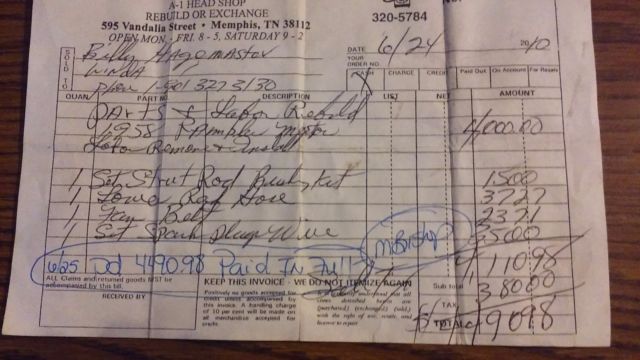 A-1 HEAD SHOP
REBUILD OR EXCHANGE
595 Vandalia Street • Memphis, TN 38112
OPEN MON.-FRI. 8-5, SATURDAY 9-2
320-5784
SOLD TO
Billy
DATE 6/24 2010
YOUR ORDER NO.
Phone 1-901 327 3130
CASH CHARGE CREDIT Paid Out On Account For Resale
QUAN. PART NO. DESCRIPTION LIST NET AMOUNT
Parts & Labor Rebuild
1958 Rambler Motor 4000.00
Labor Remove & Install
1 Set Strut Rod Bushy Kit 1500
1 Lower Rad Hose 3727
1 Fan Belt 2371
1 Set Spark Plug Wire 3500
6/25 Pd 4490.98 Paid IN Full
411098
ALL Claims and returned goods MUST be accompanied by this bill.
KEEP THIS INVOICE - WE DO NOT ITEMIZE AGAIN
Sub total
38000
RECEIVED BY
Positively no goods accepted for credit unless accompanied by this invoice. A handling charge of 10 per cent will be made on all merchandise accepted for credit.
TAX
TOTAL 449098